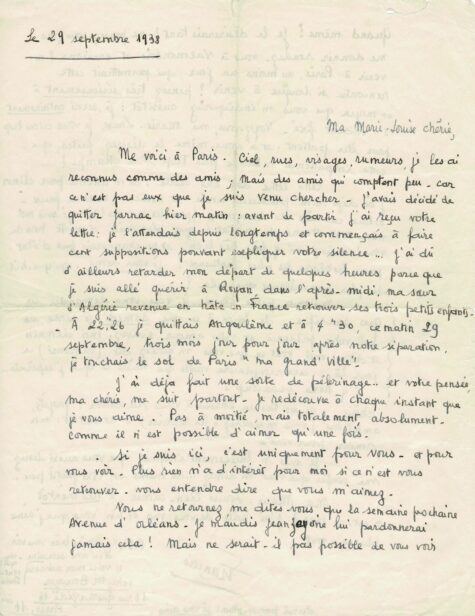 Le 29 septembre 1938
Ma Marie-Louise chérie,
Me voici à Paris. Ciel, rues, visages, rumeurs, je les ai
reconnus comme des amis ; mais des amis qui comptent peu. car
ce n'est pas eux que je suis venu chercher. J'avais décidé de
quitter Jarnac hier matin : avant de partir j'ai reçu votre
lettre : je l'attendais depuis longtemps et commençais à faire
cent suppositions pouvant expliquer votre silence... J'ai dû
d'ailleurs retarder mon départ de quelques heures parce que
je suis allé quérir à Royan dans l'après-midi, ma sœur
d'Algérie revenue en hâte en France retrouver ses trois petits enfants.
À 22,26 je quittais Angoulême et à 4 h 30, ce matin 29
septembre, trois mois jour pour jour après notre séparation,
je touchais le sol de Paris "ma grand'Ville".
J'ai déjà fait une sorte de pèlerinage... et votre pensée,
ma chérie, me suit partout. Je redécouvre à chaque instant que
je vous aime. Pas à moitié mais totalement, absolument.
comme il n'est possible d'aimer qu'une fois.
Si je suis ici, c'est uniquement pour vous. et pour
vous voir. Plus rien n'a d'intérêt pour moi si ce n'est vous
retrouver. vous entendre dire que vous m'aimez.
Vous ne retournez, me dites-vous, que la semaine prochaine
Avenue d'orléans. Je maudis jean je ne lui pardonnerai
jamais cela ! Mais ne serait-il pas possible de vous voir